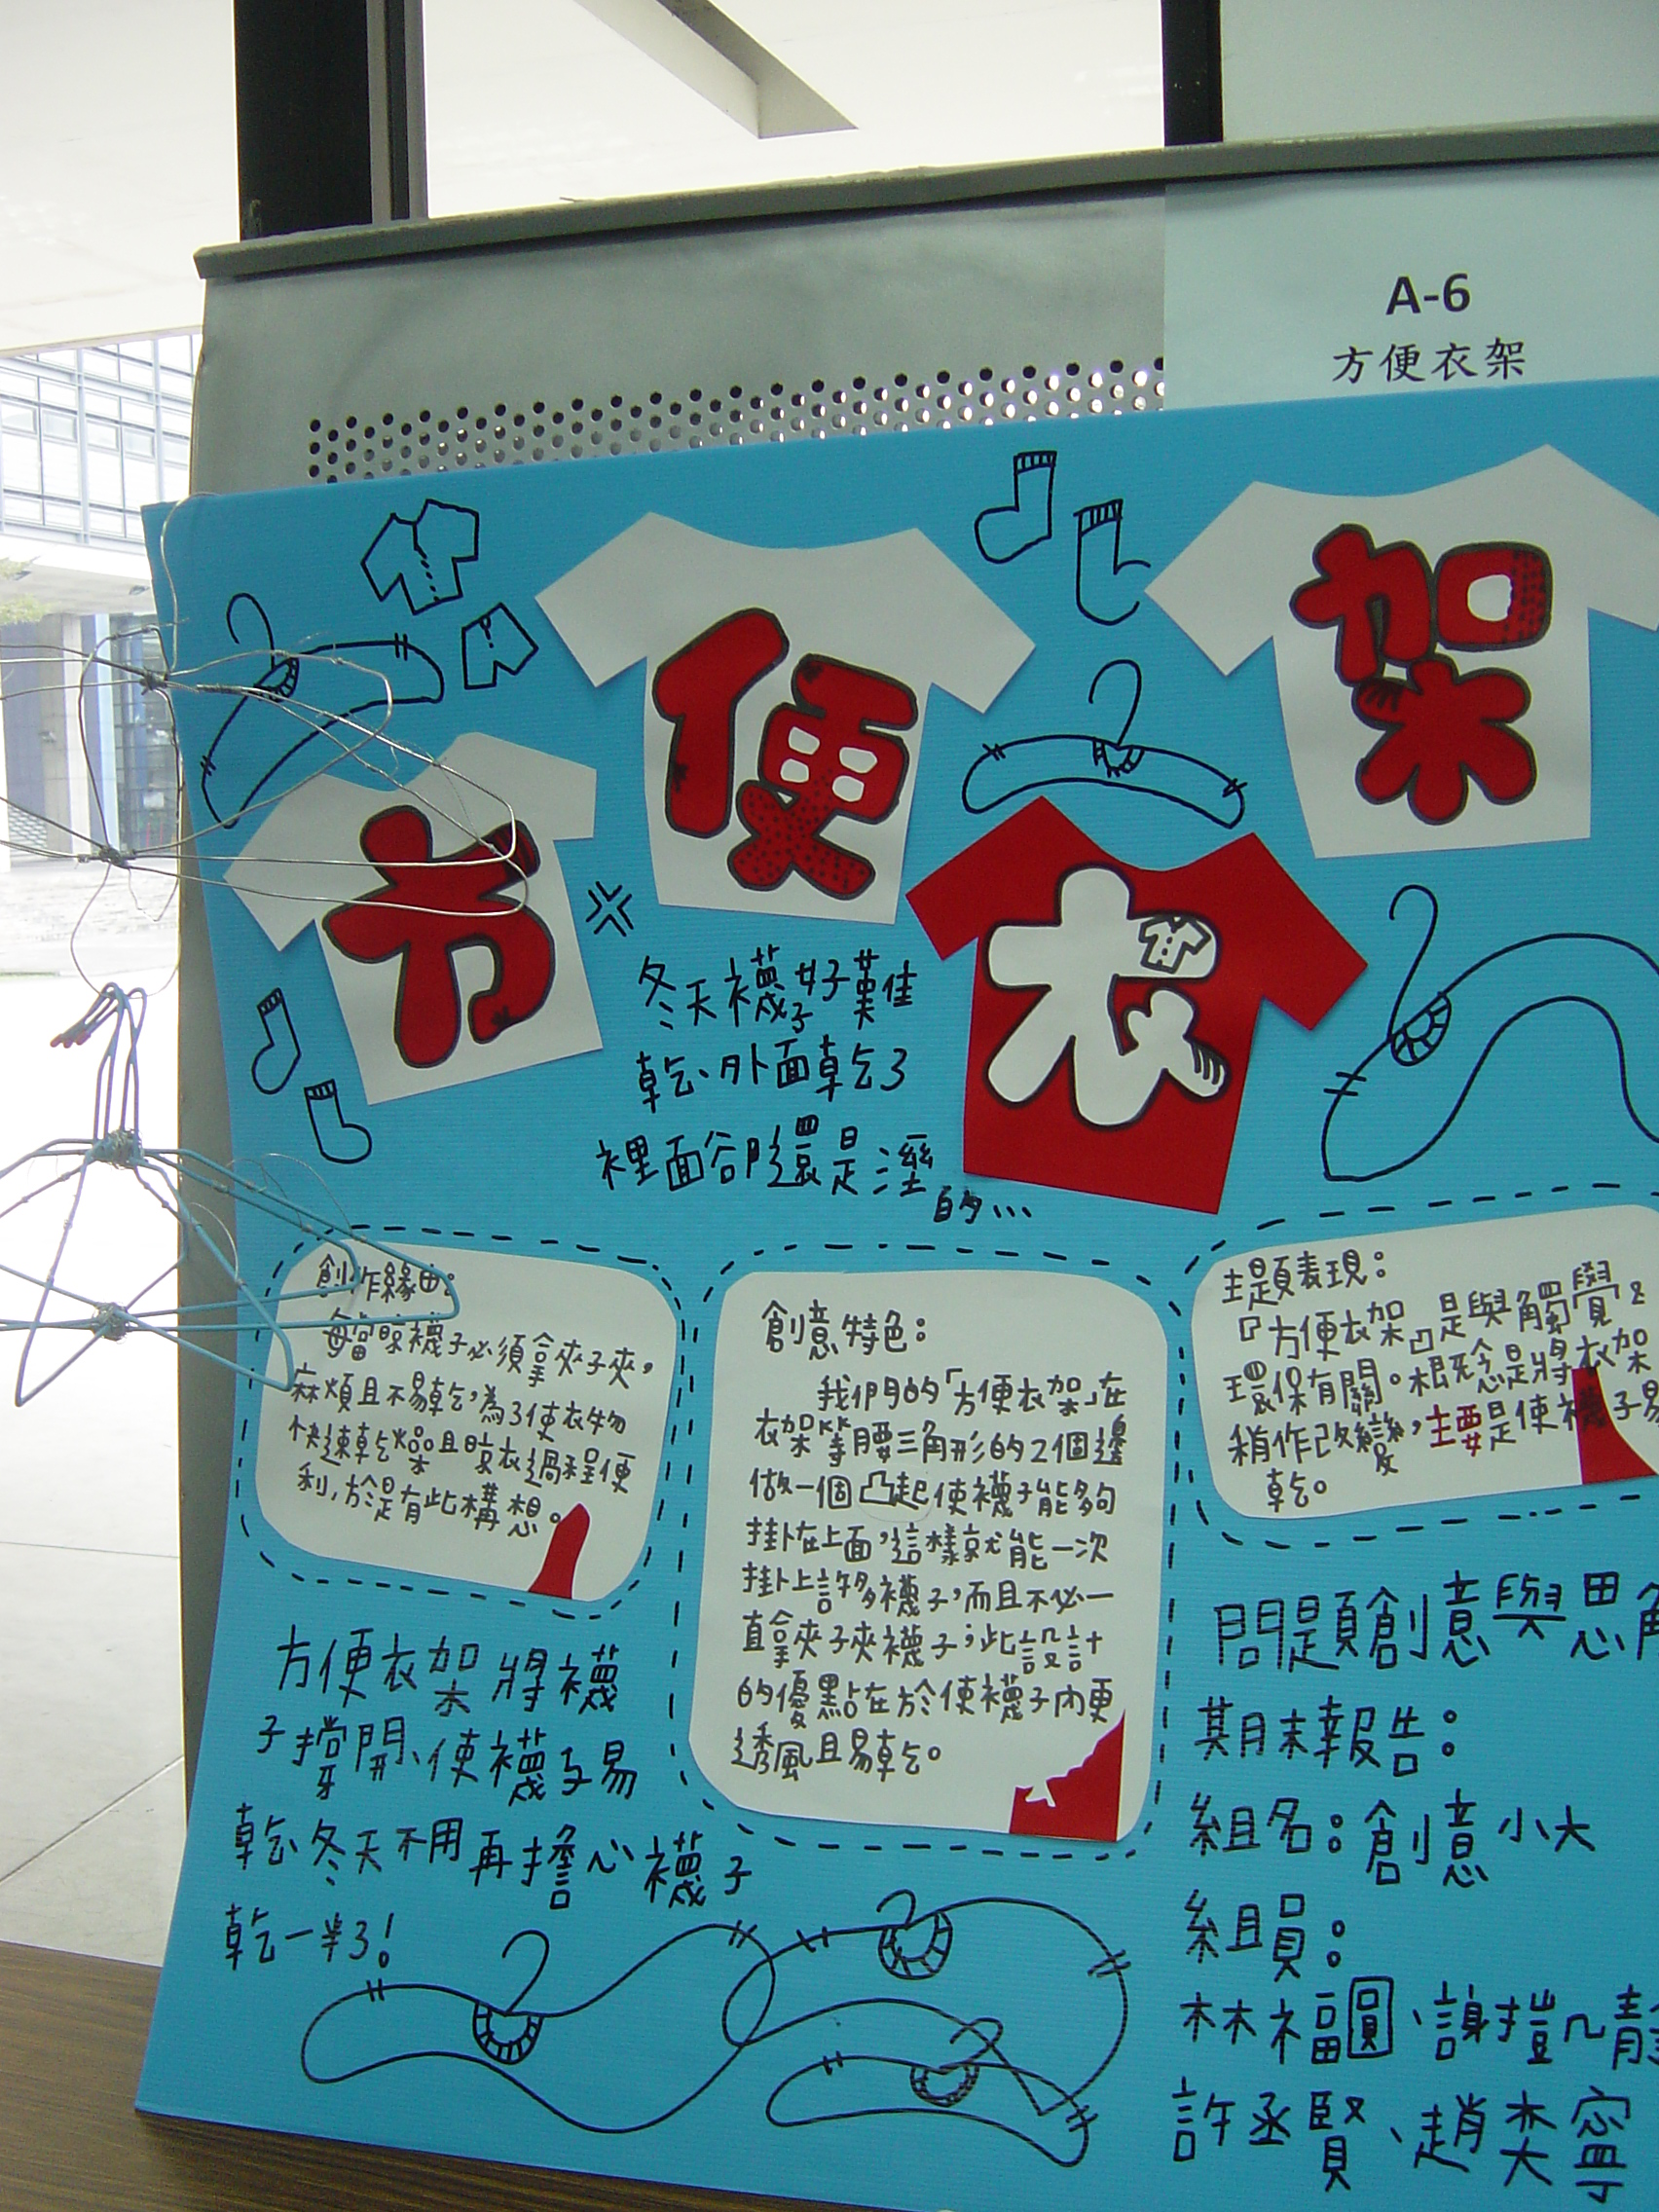 A-6
方便衣架
方便衣架
冬天襪子好難
乾、外面乾了
裡面卻還是溼
的...
創作緣由：
每當晾襪子必須拿夾子夾，
麻煩且不易乾，為了使衣物
快速乾燥且晾衣過程便
利，於是有此構想。
創意特色：
我們的「方便衣架」在
衣架等腰三角形的2個邊
做一個凸起使襪子能夠
掛在上面，這樣就能一次
掛上許多襪子，而且不必一
直拿夾子夾襪子；此設計
的優點在於使襪子內更
透風且易乾。
主題表現：
『方便衣架』是與觸覺&
環保有關。概念是將衣架
稍作改變，主要是使襪子易
乾。
方便衣架將襪
子撐開、使襪子易
乾冬天不用再擔心襪子
乾一半了！
問題創意與思
期末報告：
組名：創意小大
組員：
林福圓、謝凱靜
許丞賢、趙 寧